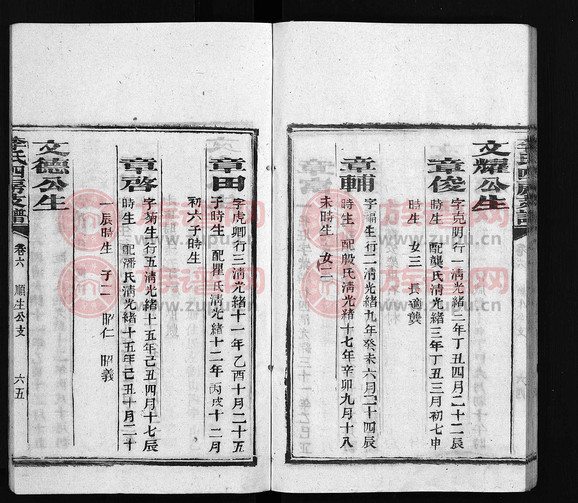 文耀公生
章俊
字克明行一清光緒三年丁丑四月二十二辰
時生 配龔氏清光緒三年丁丑三月初七申
時生 女三 長適龔
章輔
字福生行二清光緒九年癸未六月二十四辰
時生 配殷氏清光緒十七年辛卯九月十八
未時生 女二
章田
字虎卿行三清光緒十一年乙酉十月二十五
子時生 配瞿氏清光緒十二年丙戌十二月
初六子時生
章啓
字菊生行五清光緒十五年己丑四月十七辰
時生 配潘氏清光緒十五年己丑十月二十
一辰時生 子二 昭仁 昭義
文德公生
李氏四房支譜
卷六 順生公支 六五